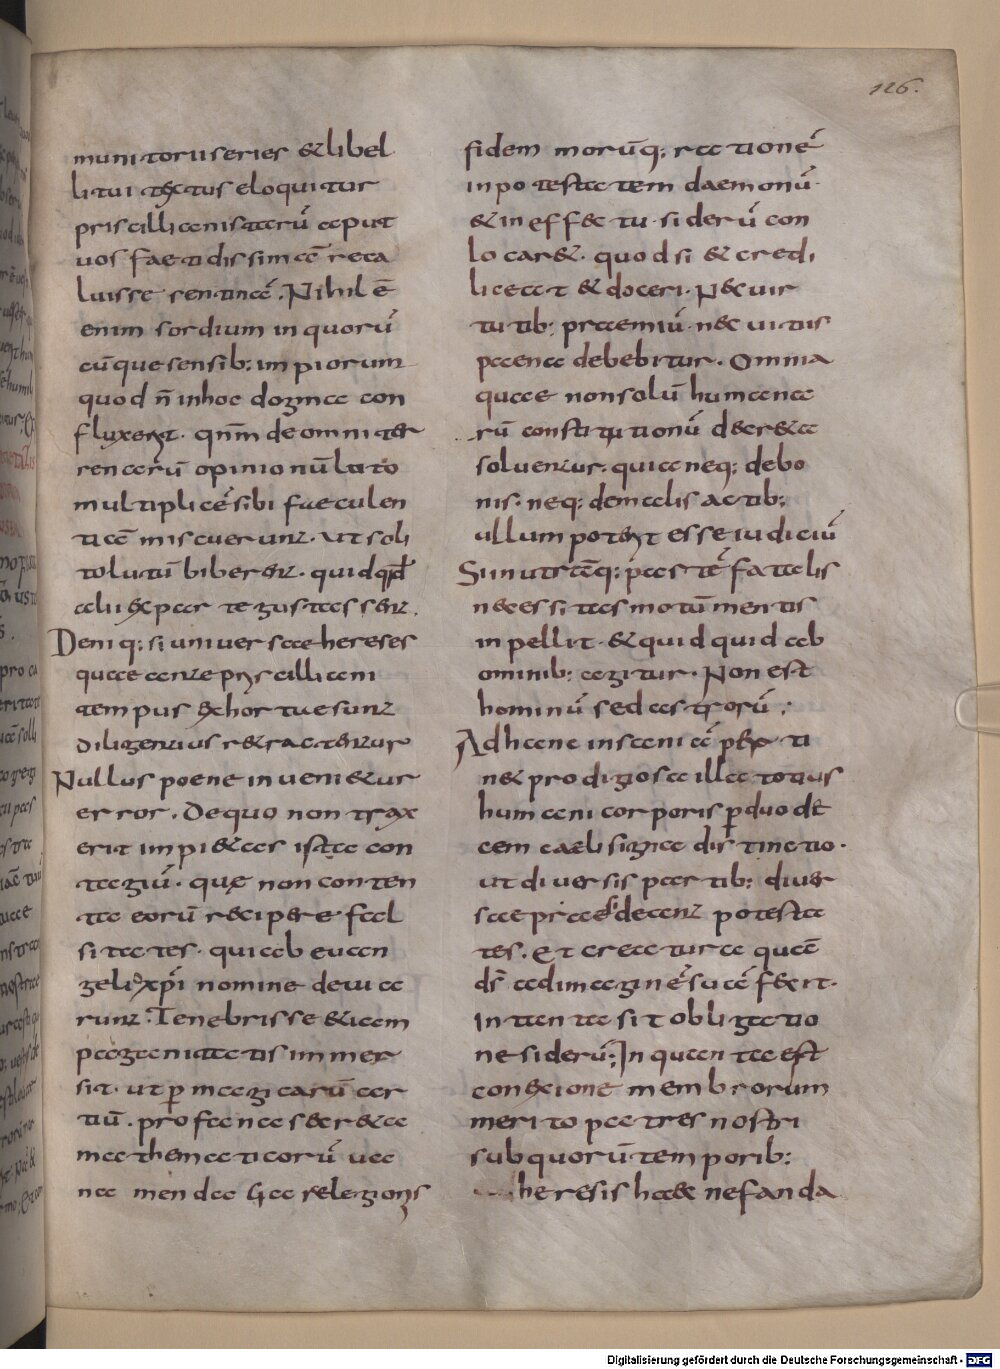 126.
munitorii series & libel
li tui textus eloquitur
priscillianistarū apud
uos faetidissimā reca
luisse sentintiā. Nihil ē
enim sordium in quorū
cūque sensib; impiorum
quod n̄ in hoc dogma con
fluxerit. qnm̄ de omni ter
renarū opinionū luto
multiplicē sibi faeculen
tiā miscuerunt. ut soli
totū biberent. quidquid
alii ex parte gustassent.
Deniq; si uniuersae hereses
quae ante priscilliani
tempus exhortae sunt
diligentius retractentur
Nullus poene inuenietur
error. De quo non trax
erit impietas ista con
tagiū. quę non conten
ta eorū recipere fal
sitates. qui ab euan
gelio xp̄i nomine deuia
runt. Tenebris se etiam
paganitatis immer
sit. ut p magicarū ar
tiū. profana secreta
mathematicorū ua
na mendacia relegionis
fidem morūq; rationē
in potestatem daemonū
& in effectu siderū con
locaret. quod si & credi
liceat & doceri. Nec uir
tutib; praemiū. nec uitiis
paena debebitur. Omnia
quae non solū humana
rū constitutionū decreta
soluentur. quia neq; debo
nis. neq; de malis actib;
ullum poterit esse iudiciū
Si in utrāq; partē fatalis
necessitas motūmentis
inpellit. & quidquid ab
ominib; agitur. Non est
hominū sed astrorū;
Ad hanc insaniā perti
net prodigosa illa totius
humani corporis p duode
cem caeli signa distinctio.
ut diuersis partib; diuer
sae praesedeant potesta
tes. Et creatura quā
ds̄ ad imaginē suā fecit.
In tanta sit obligatio
ne siderū; In quanta est
conexione membrorum
merito patres nostri
sub quorū temporib;
heresis haec nefanda
Digitalisierung gefördert durch die Deutsche Forschungsgemeinschaft - DFG